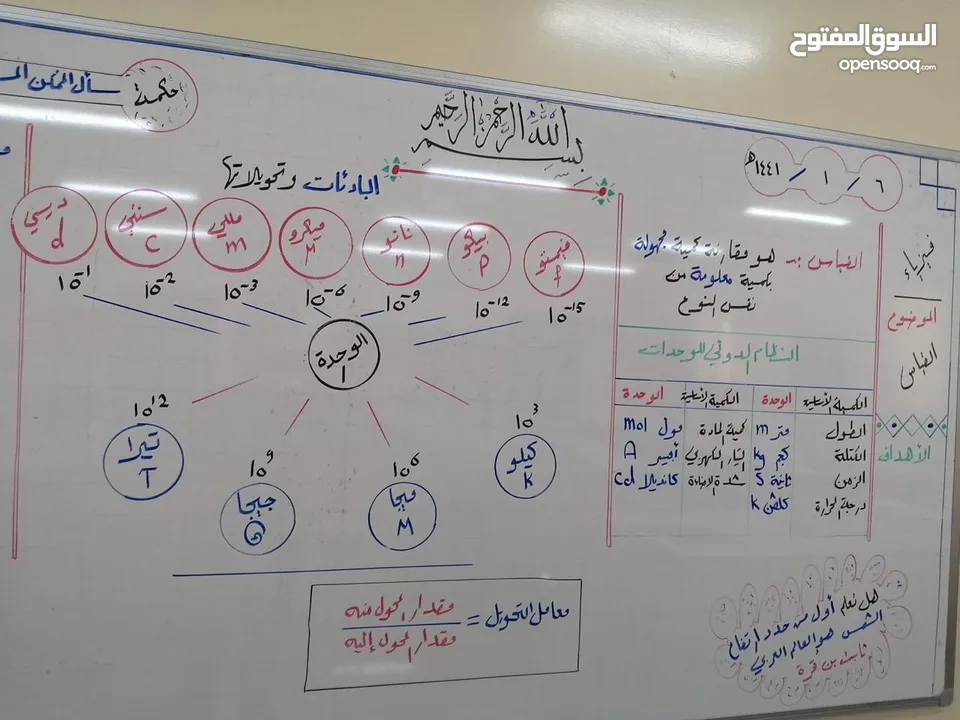 السوق المفتوح
opensooq.com
بسم الله الرحمن الرحيم
٦ / ١ / ١٤٤١هـ
فيزياء
الموضوع
القياس
الأهداف
القياس :- هو مقارنة كمية مجهولة
بكمية معلومة من
نفس النوع
النظام الدولي للوحدات
الكمية الأساسية الوحدة الكمية الأساسية الوحدة
الطول متر m كمية المادة مول mol
الكتلة كجم kg التيار الكهربي أمبير A
الزمن ثانية s شدة الإضاءة كانديلا cd
درجة الحرارة كلفن k
هل تعلم أول من حدد ارتفاع
الشمس هو العالم العربي
ثابت بن قرة
البادئات وتحويلاتها
فيمتو f 10⁻¹⁵
بيكو p 10⁻¹²
نانو n 10⁻⁹
ميكرو M 10⁻⁶
مللي m 10⁻³
سنتي c 10⁻²
ديسي d 10⁻¹
الوحدة 1
10³ كيلو k
10⁶ ميجا M
10⁹ جيجا G
10¹² تيرا T
معامل التحويل = مقدار المحول منه
مقدار المحول إليه
حكمة